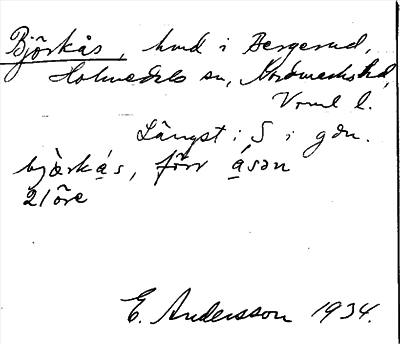 Björkås, hmd i Bergerud,
Holmedals sn, Nordmarks hd,
Vrml l.
Längst i S i gdn.
bjærkås, förr åsən
21öre
E. Andersson 1934.